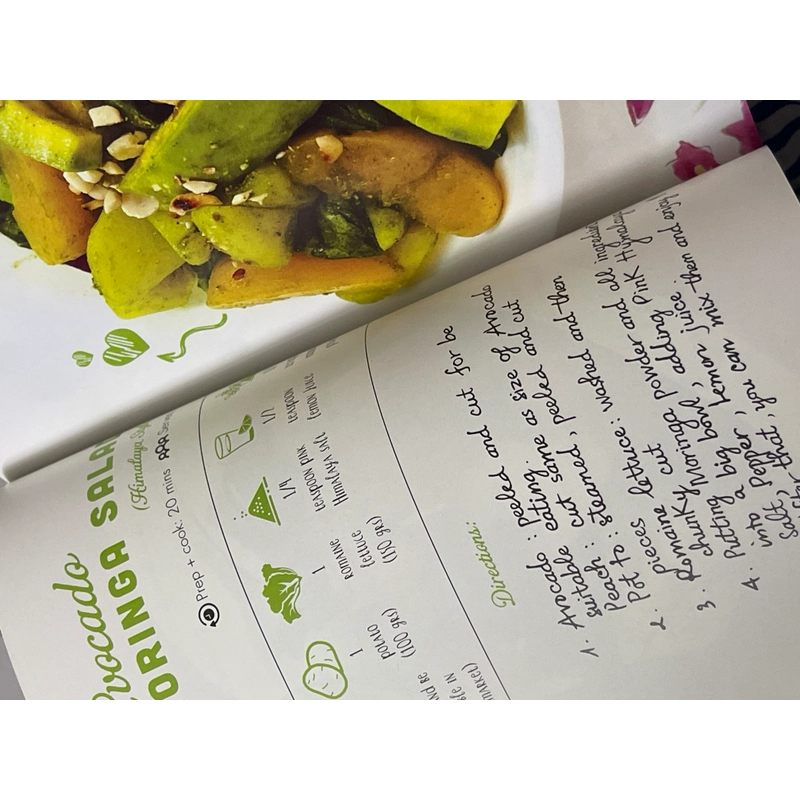 Avocado
MORINGA SALAD
(Himalaya
Prep + cook: 20 mins
1
POTATO
(100 gRs)
1
ROMAINE
LETTUCE
(150 gRs)
1/4
TEASPOON PINK
HIMALAYA SALT
1/2
TEASPOON
LEMON JUICE
AND BE
IN
MARKET)
Directions:
1. Avocado : peeled and cut for be
suitable eating.
Peach : cut same as size of Avocado
Potato : steamed, peeled and cut
2. Romaine lettuce: washed and then
pieces cut
3. chunky Moringa powder and all ingredients
Putting a big bowl, adding Pink Hymalaya
salt, pepper, Lemon juice.
4. into that, you can mix then and enjoy!